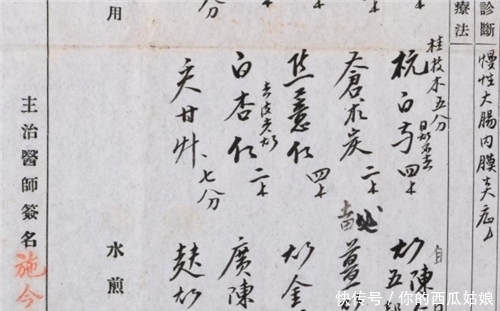 診斷
慢性大腸內膜炎症
療法
桂枝木五分
杭白芍四
蒼朮炭二
薏仁四
白杏仁二
去皮尖炒
炙甘艸 七分
自
陳
炒五
薑
炒金
廣陳
麸炒
用
水煎
主治醫師簽名
施今
快传号/你的西瓜姑娘